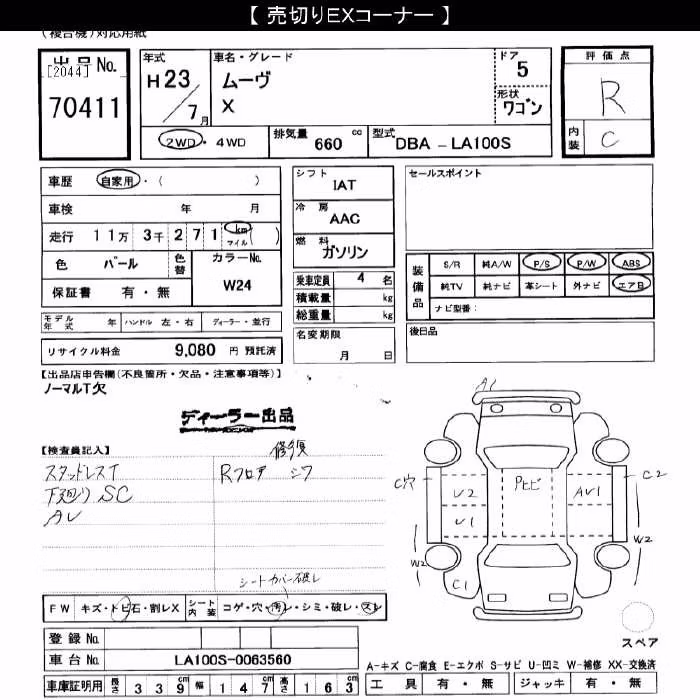 【 売切りEXコーナー 】
(複合機)対応用紙
出品 No.
[2044]
70411
年式
H23/7月
車名・グレード
ムーヴ
X
ドア
5
形状
ワゴン
評価点
R
内装
C
2WD ・ 4WD
排気量 660 cc
型式 DBA - LA100S
車歴 自家用 ・ ( )
車検 年 月
走行 11万 3千 271 km マイル ( )
色 パール 色替 カラーNo. W24
保証書 有 ・ 無
モデル年式 年 ハンドル 左・右 ディーラー・並行
リサイクル料金 9,080 円 預託済
シフト
IAT
冷房
AAC
燃料
ガソリン
乗車定員 4 名
積載量 kg
総重量 kg
名変期限
月 日
セールスポイント
装備品
S/R 純A/W P/S P/W ABS
純TV 純ナビ 革シート 外ナビ エアB
ナビ型番:
後日品
【出品店申告欄(不良箇所・欠品・注意事項等)】
ノーマルT欠
ディーラー出品
【検査員記入】
スタッドレスT
下廻り SC
修復
Rフロア シワ
シートカバー破レ
FW キズ・トビ石・割レX シート内装 コゲ・穴・汚レ・シミ・破レ・スレ
登録 No.
車台 No. LA100S-0063560
車庫証明用 長さ 339 cm 幅 147 cm 高さ 163 cm
A1
C穴
U2
U1
C1
W2
Pヒビ
AU1
C2
W2
スペア
A-キズ C-腐食 E-エクボ S-サビ U-凹ミ W-補修 XX-交換済
工具 有 ・ 無 ジャッキ 有 ・ 無